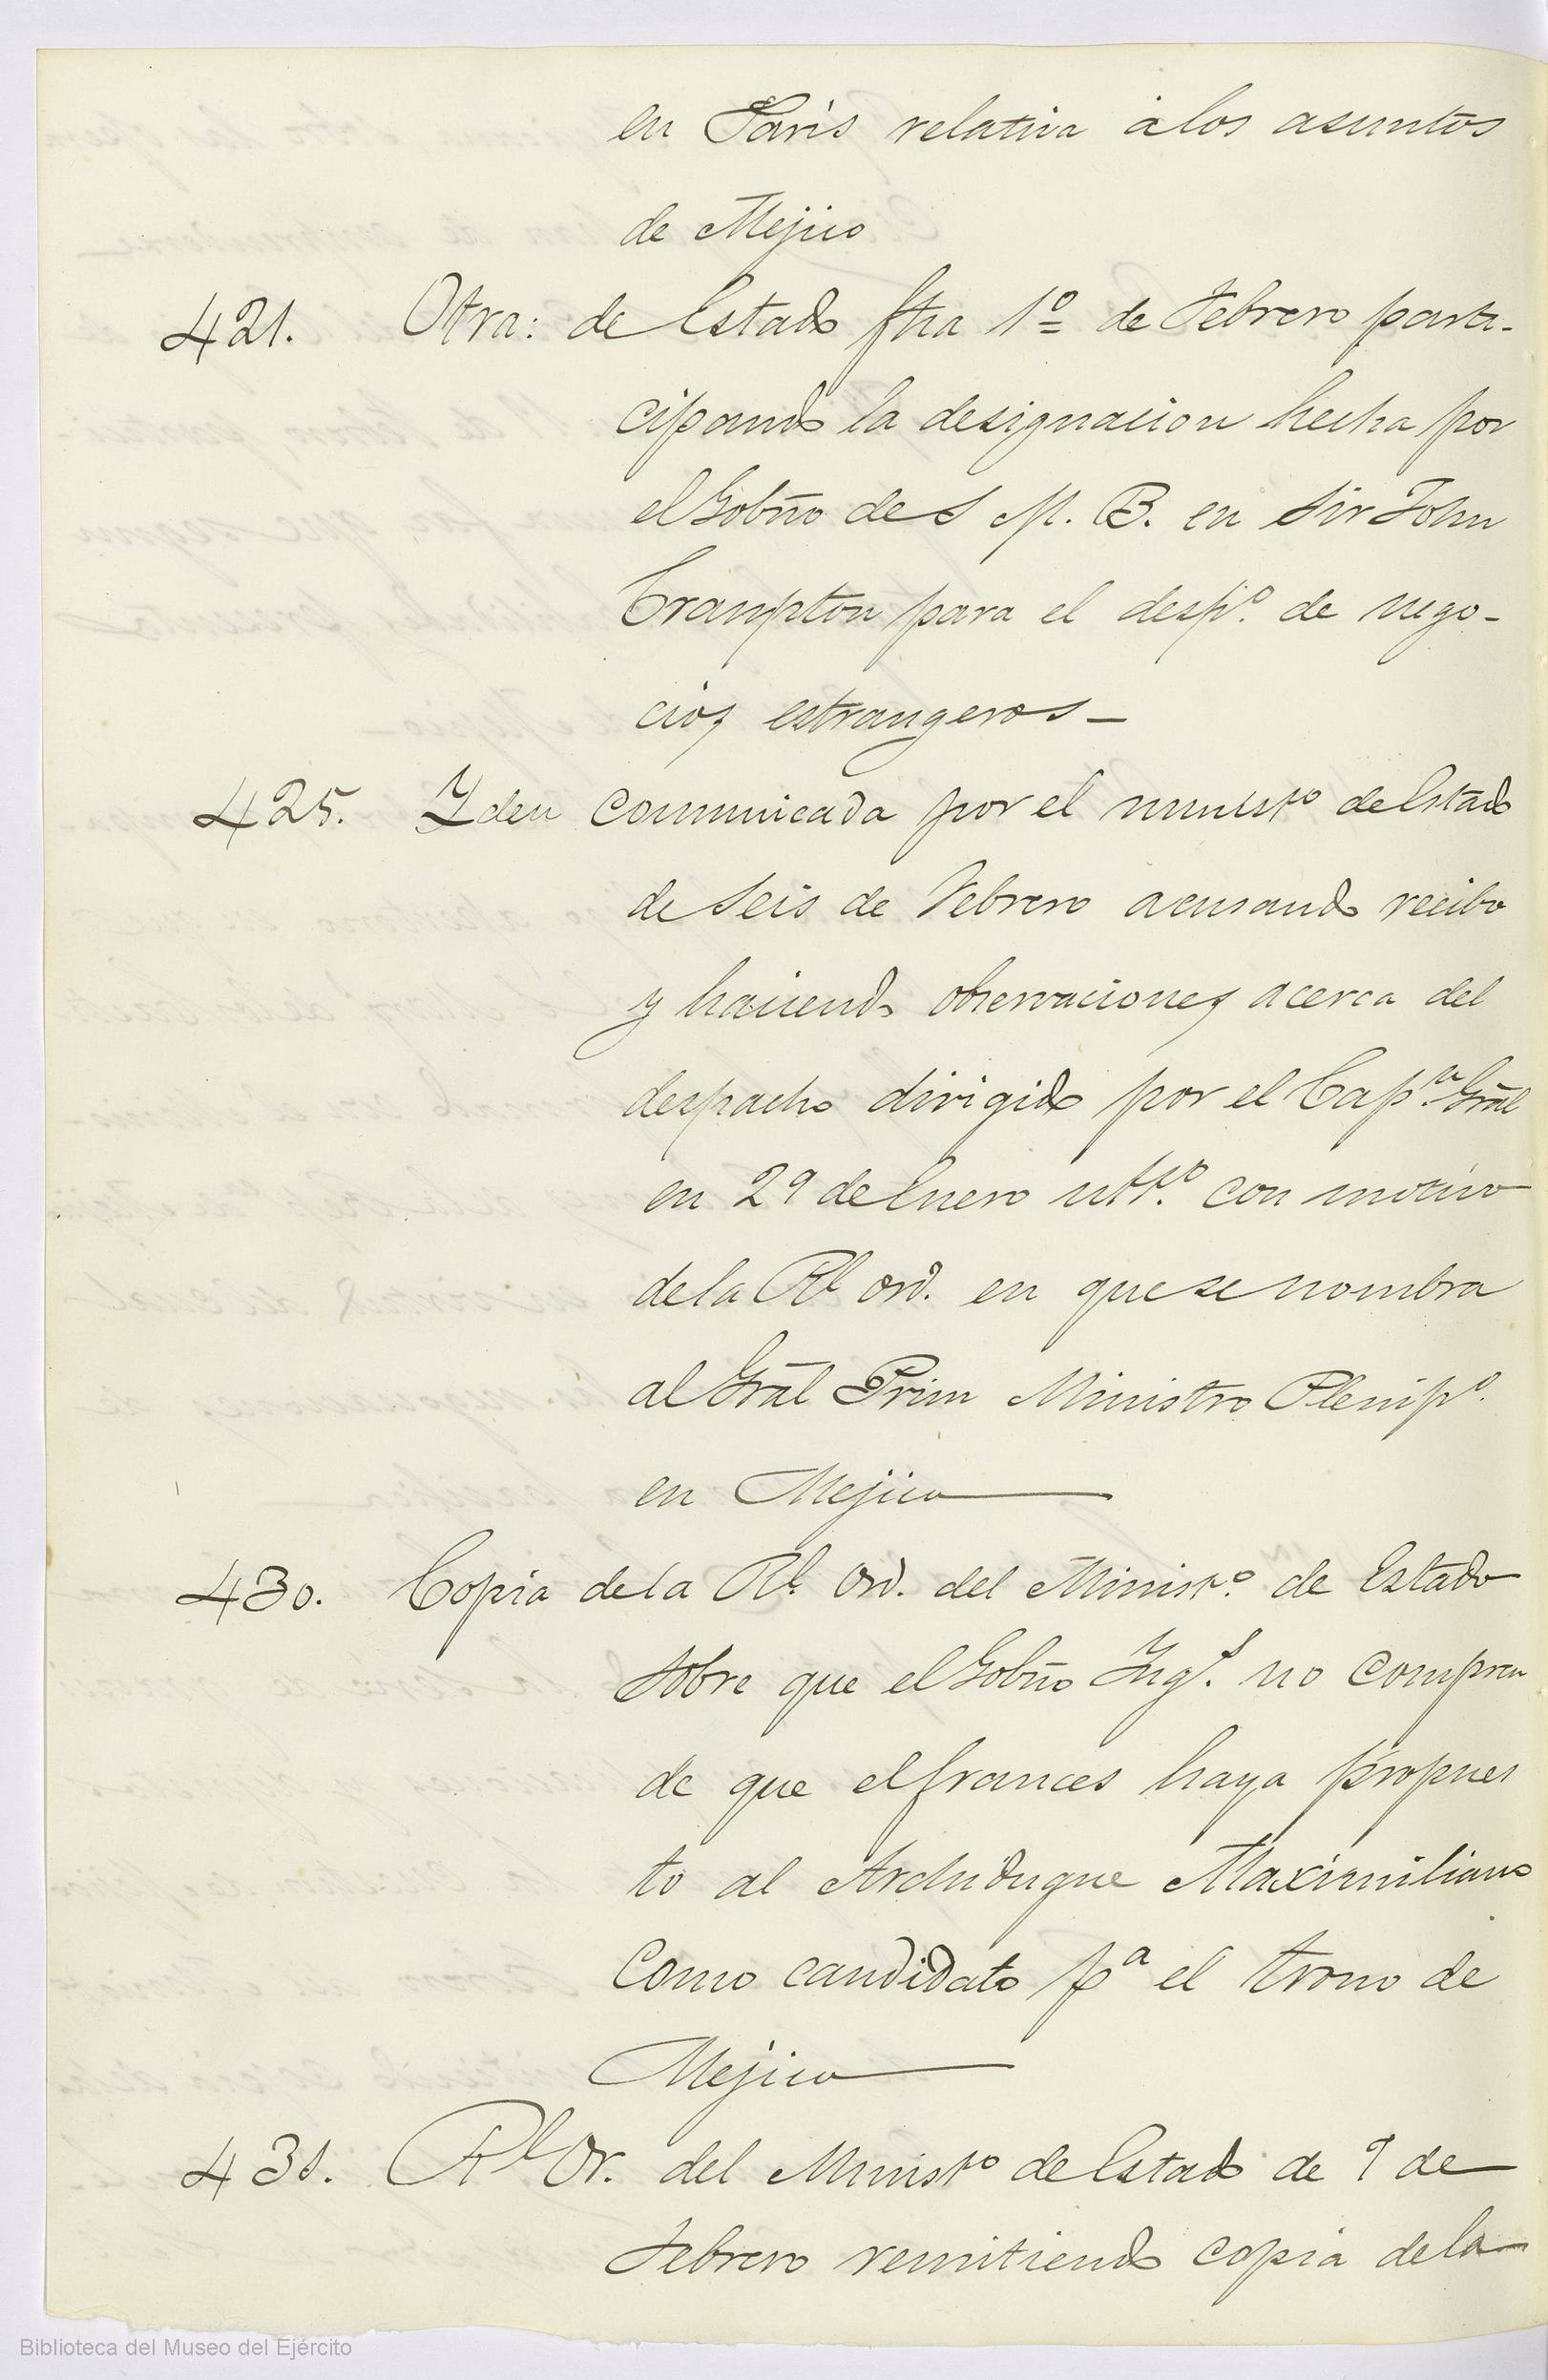 en Paris relativa á los asuntos
de Mejico
421. Otra: de Estado fha 1º de Febrero parti-
cipando la designacion hecha por
el Gobño de S M. B. en Sir John
Crampton para el despº. de nego-
cios estrangeros_
425. Yden comunicada por el ministº de Estado
de Seis de Febrero acusando recibo
y haciendo observaciones acerca del
despacho dirigido por el Capⁿ. Grāl
en 29 de Enero ultº. con motivo
de la Rl ord. en que se nombra
al Grāl Prim Ministro Plenipº.
en Mejico
430. Copia de la Rl. Ord. del Ministº. de Estado
sobre que el Gobño Ingˢ. no compren
de que el frances haya propues
to al Archiduque Maximiliano
Como candidato pª el trono de
Mejico
431. Rl Or. del Ministº de Estado de 9 de
Febrero remitiendo copia de la
Biblioteca del Museo del Ejército